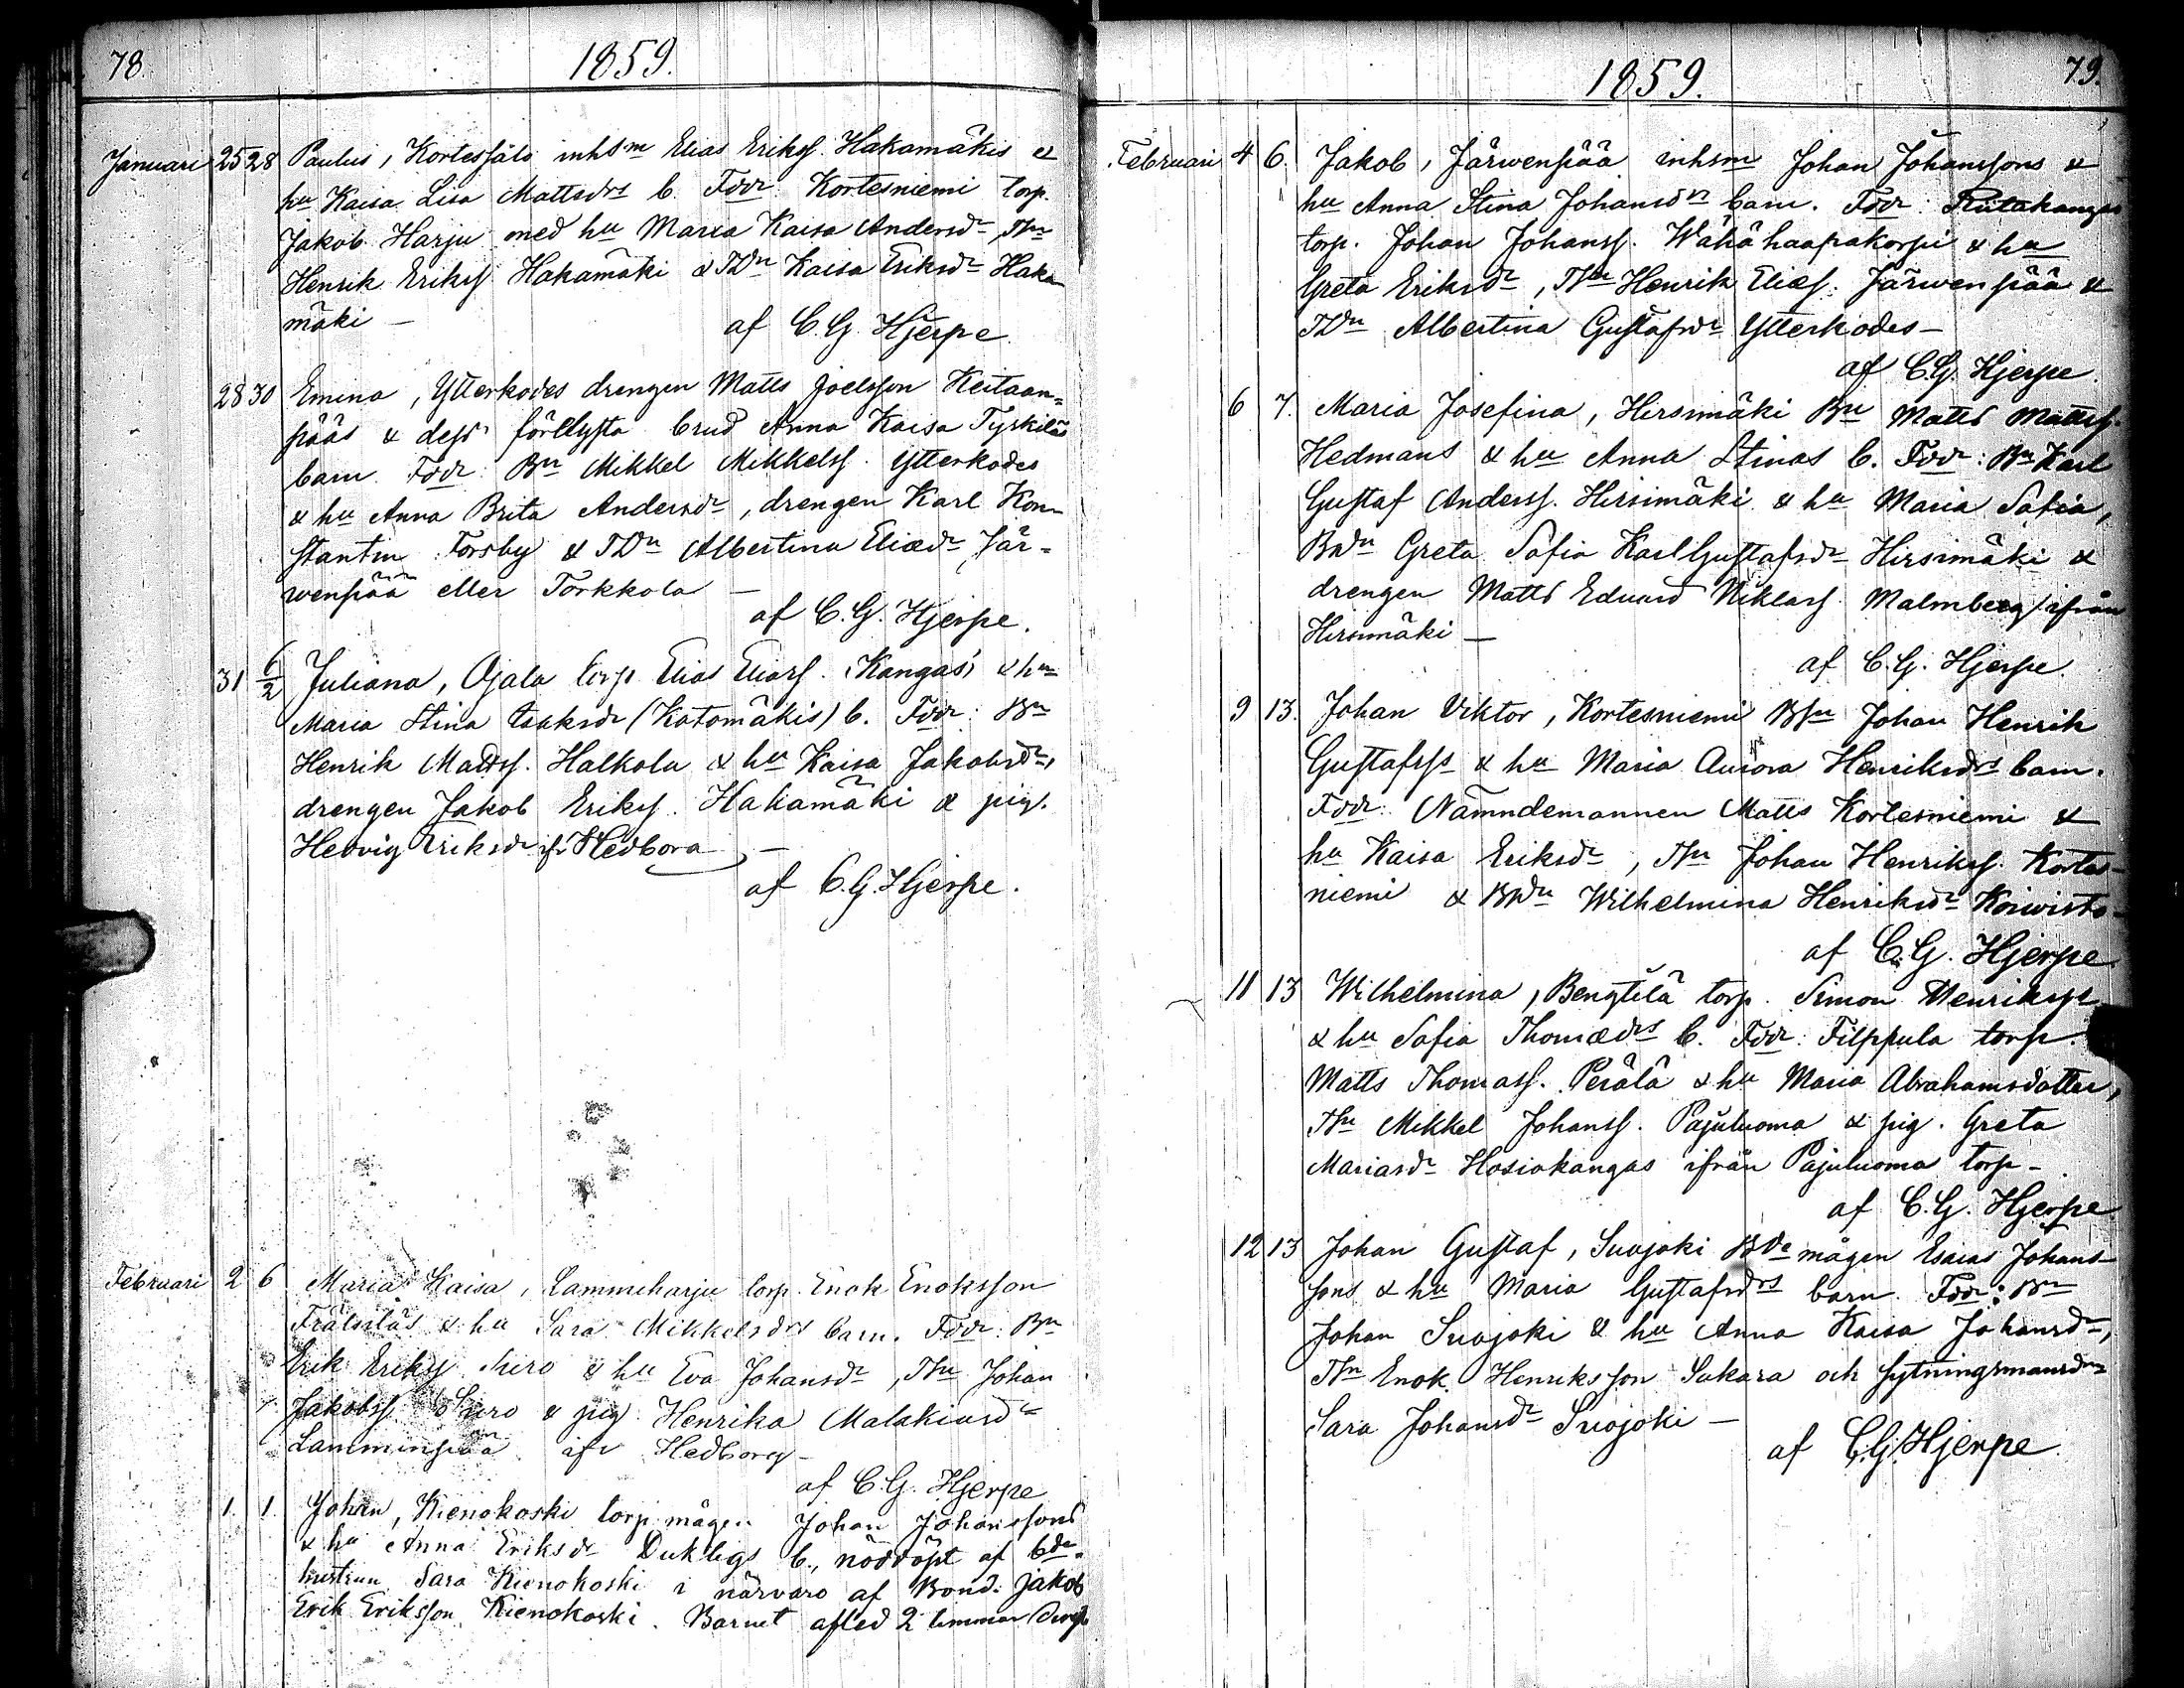 78.
1859.
Januari 25 28 Paulus, Kortesjälo inhsm Elias Eriksſ. Hakamäkis &
hu Kaisa Lisa Mattsdrs b. Fddr Kortesniemi torp.
Jakob Harju med hu Maria Kaisa Andersdr, Thn
Henrik Eriksſ. Hakamäki & TDn Kaisa Eriksdr Haka
mäki —
af C. G. Hjerpe.
28 30 Emina, Ytterkodes drengen Matts Joelsſon Keitaan=
pääs & deſs förllyſta brud Anna Kaisa Tyrkiläs
barn Fddr: Bn Mikkel Mikkelsſ. Ytterkodes
& hu Anna Brita Andersdr, drengen Karl Kon-
ſtantin Forsby & TDn Albertina Eliædr Jär=
wenpää eller Torkkola —
af C. G. Hjerpe.
31 6/2 Juliana, Ojala torp. Elias Eliasſ. Kangas' & hu
Maria Stina Isaksdr (Katomäkis) b. Fddr: Bn
Henrik Mattsſ. Halkola & hu Kaisa Jakobsdr,
drengen Jakob Eriksſ. Hakamäki & pig.
Hedvig Eriksdr ifr Hedbora —
af C. G. Hjerpe.
Februari 2 6 Maria Kaisa, Lammiharju torp. Enok Enoksſon
Frälsiläs & hu Sara Mikkelsdrs barn. Fddr: Bn
Erik Eriksſ. Suro & hu Eva Johansdr, Thn Johan
Jakobsſ. Suro & pig. Henrika Malakiasdr
Lamminpää ifr Hedborg —
af C. G. Hjerpe
1. 1. Johan, Kienokoski torp. mågen Johan Johansſons
& hu Anna Eriksdr Duktigs b., nöddöpt af bde-
hustrun Sara Kienokoski i närvaro af Bond. Jakob
Erik Eriksſon Kienokoski. Barnet afled 2 timmar
79.
1859.
Februari 4 6. Jakob, Järwenpää inhsm Johan Johansſons &
hu Anna Stina Johansdrs barn. Fddr: Rutakangas
torp. Johan Johansſ. Wähähaapakorpi & hu
Greta Eriksdr, Thn Henrik Eliæſ. Järwenpää &
TDn Albertina Guſtafsdr Ytterkodes —
af C. G. Hjerpe.
6 7. Maria Josefina, Hirsimäki Bn Matts Mattsſ.
Hedmans & hu Anna Stinas b. Fddr: Bn Karl
Guſtaf Andersſ. Hirsimäki & hu Maria Sofia,
BnDn Greta Sofia Karl Guſtafsdr Hirsimäki &
drengen Matts Eduard Niklasſ. Malmberg ifrån
Hirsimäki —
af C. G. Hjerpe.
9 13. Johan Viktor, Kortesniemi Bſn Johan Henrik
Guſtafsſs & hu Maria Aurora Henriksdrs barn.
Fddr: Nämndemannen Matts Kortesniemi &
hu Kaisa Eriksdr, Thn Johan Henriksſ. Kortes-
niemi & BnDn Wilhelmina Henriksdr Koiwisto —
af C. G. Hjerpe
11 13 Wilhelmina, Bengtilä torp. Simon Henriksſs
& hu Sofia Thomædrs b. Fddr: Filppula torp.
Matts Thomasſ. Perälä & hu Maria Abrahamsdotter,
Thn Mikkel Johansſ. Pajuluoma & pig. Greta
Mariasdr Hosiokangas ifrån Pajuluoma torp —
af C. G. Hjerpe
12 13 Johan Guſtaf, Suojoki Bde mågen Esaias Johans-
ſons & hu Maria Guſtafsdrs barn. Fddr: Bn
Johan Suojoki & hu Anna Kaisa Johansdr,
Thn Enok Henriksſon Sakara och ſytningsmansdn
Sara Johansdr Suojoki —
af C. G. Hjerpe